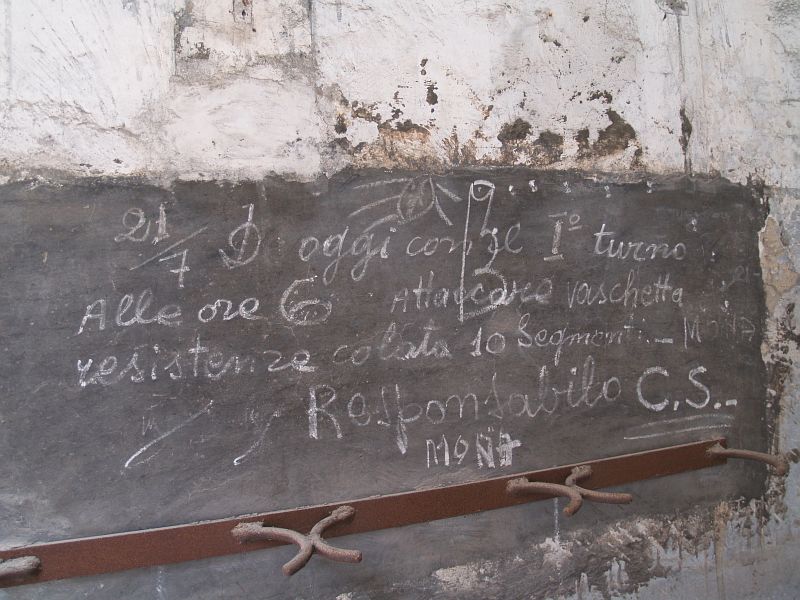 21/7 Da oggi con il I° turno
Alle ore 6 Attaccare vaschetta
resistenze colata 10 Segmenti - MONA
Responsabile C.S.-
MONA